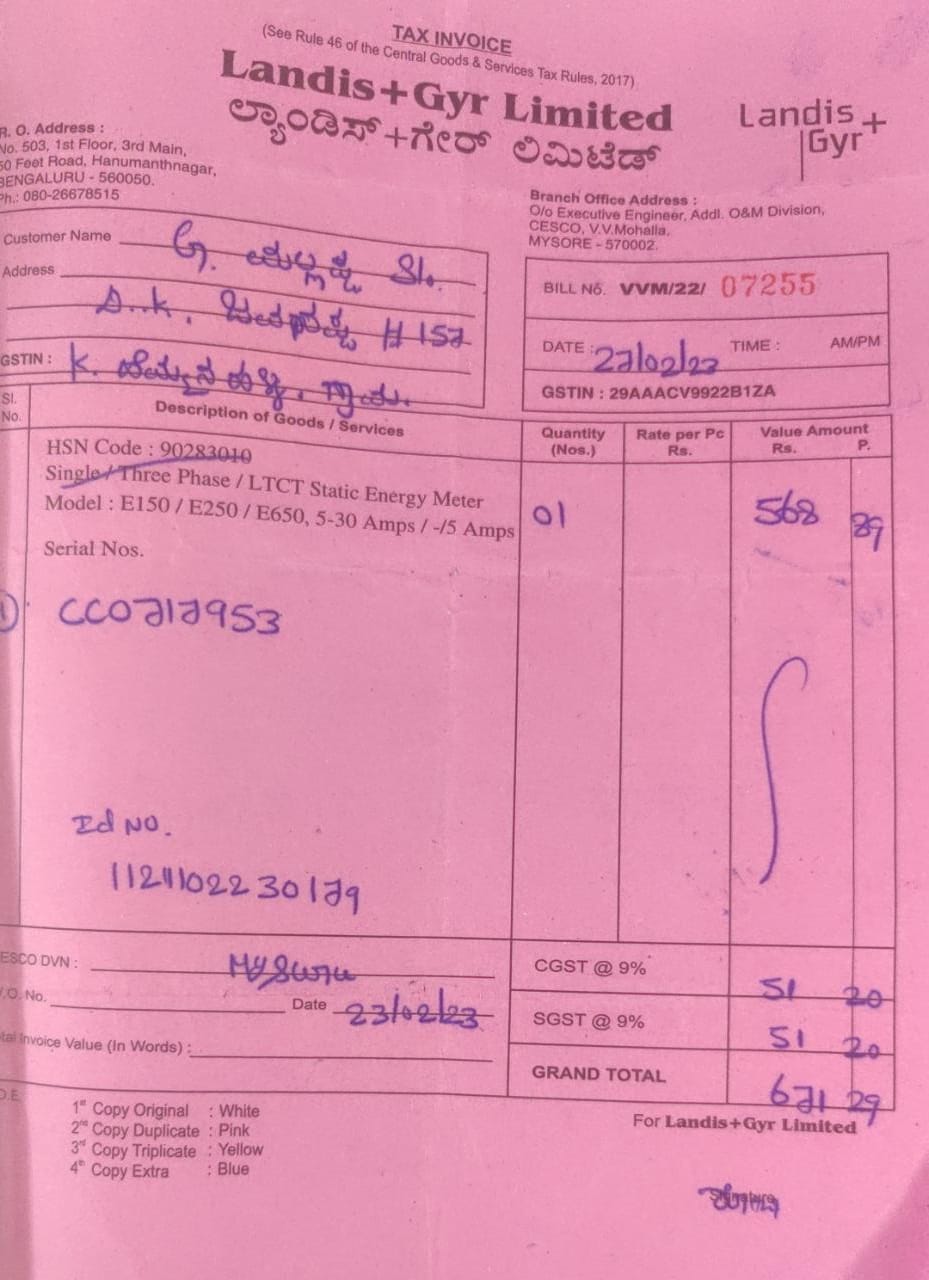 TAX INVOICE
(See Rule 46 of the Central Goods & Services Tax Rules, 2017)
Landis+Gyr Limited
ಲ್ಯಾಂಡಿಸ್+ಗೇರ್ ಲಿಮಿಟೆಡ್
Landis+
Gyr
R. O. Address :
No. 503, 1st Floor, 3rd Main,
50 Feet Road, Hanumanthnagar,
BENGALURU - 560050.
Ph.: 080-26678515
Branch Office Address :
O/o Executive Engineer, Addl. O&M Division,
CESCO, V.V.Mohalla,
MYSORE - 570002.
Customer Name G. S/o.
Address D.K. # 157
GSTIN : K.
BILL No. VVM/22/ 07255
DATE : 27/02/23 TIME : AM/PM
GSTIN : 29AAACV9922B1ZA
Sl. No. Description of Goods / Services Quantity (Nos.) Rate per Pc Rs. Value Amount Rs. P.
HSN Code : 90283010
Single / Three Phase / LTCT Static Energy Meter
Model : E150 / E250 / E650, 5-30 Amps / -/5 Amps 01 568 89
Serial Nos.
1) CC0717953
Id NO.
11241102230179
ESCO DVN : Mysuru
CGST @ 9% 51 20
.O. No. Date 23/02/23
SGST @ 9% 51 20
tal Invoice Value (In Words) :
GRAND TOTAL 671 29
1st Copy Original : White
2nd Copy Duplicate : Pink
3rd Copy Triplicate : Yellow
4th Copy Extra : Blue
For Landis+Gyr Limited